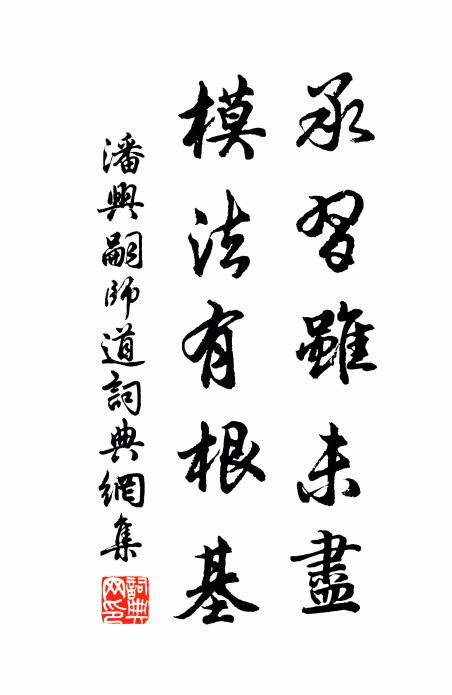 承習雖未盡
模法有根基
潘興嗣師道詞典網集
詞典網印